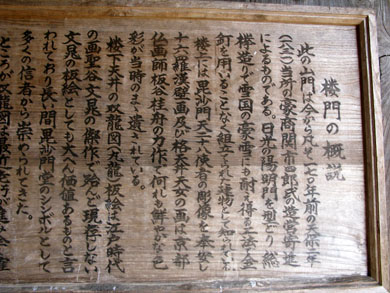 楼門の概説
此の山門は今から凡そ一七〇年前の天保二年
(一八三一)当浦の豪商関市郎氏の造営寄進
によるものである。日光の陽明門を型どり総
欅造りで雪国の豪雪にも耐え得る工法で金
釘を用いることなく組立てた建物として知られている
楼上には毘沙門天二十八使者の彫像を奉安し
十六羅漢壁画及び格天井天女の画は京都
仏画師板谷桂舟の力作で何れも鮮やかな色
彩が当時のまゝ遺されている。
楼下天井の双龍図丸龍の板絵は江戸時代
の画聖谷文晁の傑作で殆んど現存しない
文晁の板絵としても大へん価値あるものと言
われており長い間毘沙門堂のシンボルとして
多くの信者から崇められてきた。
ところが双龍図は最近